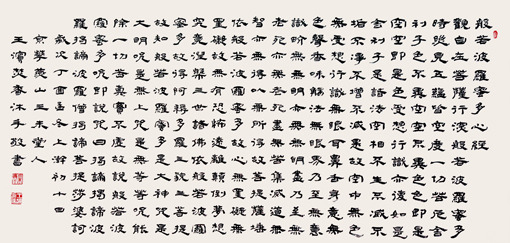 般若波羅蜜多心經
觀自在菩薩行深般若波羅蜜多
時照見五蘊皆空度一切苦厄舍
利子色不異空空不異色色即是
空空即是色受想行識亦復如是
舍利子是諸法空相不生不滅不
垢不淨不增不減是故空中無色
無受想行識無眼耳鼻舌身意無
色聲香味觸法無眼界乃至無意
識界無無明亦無無明盡乃至無
老死亦無老死盡無苦集滅道無
智亦無得以無所得故菩提薩埵
依般若波羅蜜多故心無罣礙無
罣礙故無有恐怖遠離顛倒夢想
究竟涅槃三世諸佛依般若波羅
蜜多故得阿耨多羅三藐三菩提
故知般若波羅蜜多是大神咒是
大明咒是無上咒是無等等咒能
除一切苦真實不虛故說般若波
羅蜜多咒即說咒曰揭諦揭諦波
羅揭諦波羅僧揭諦菩提薩婆訶
歲次丁酉孟冬上澣初十四
燕山玉未堂人
王濱焚香沐手敬書